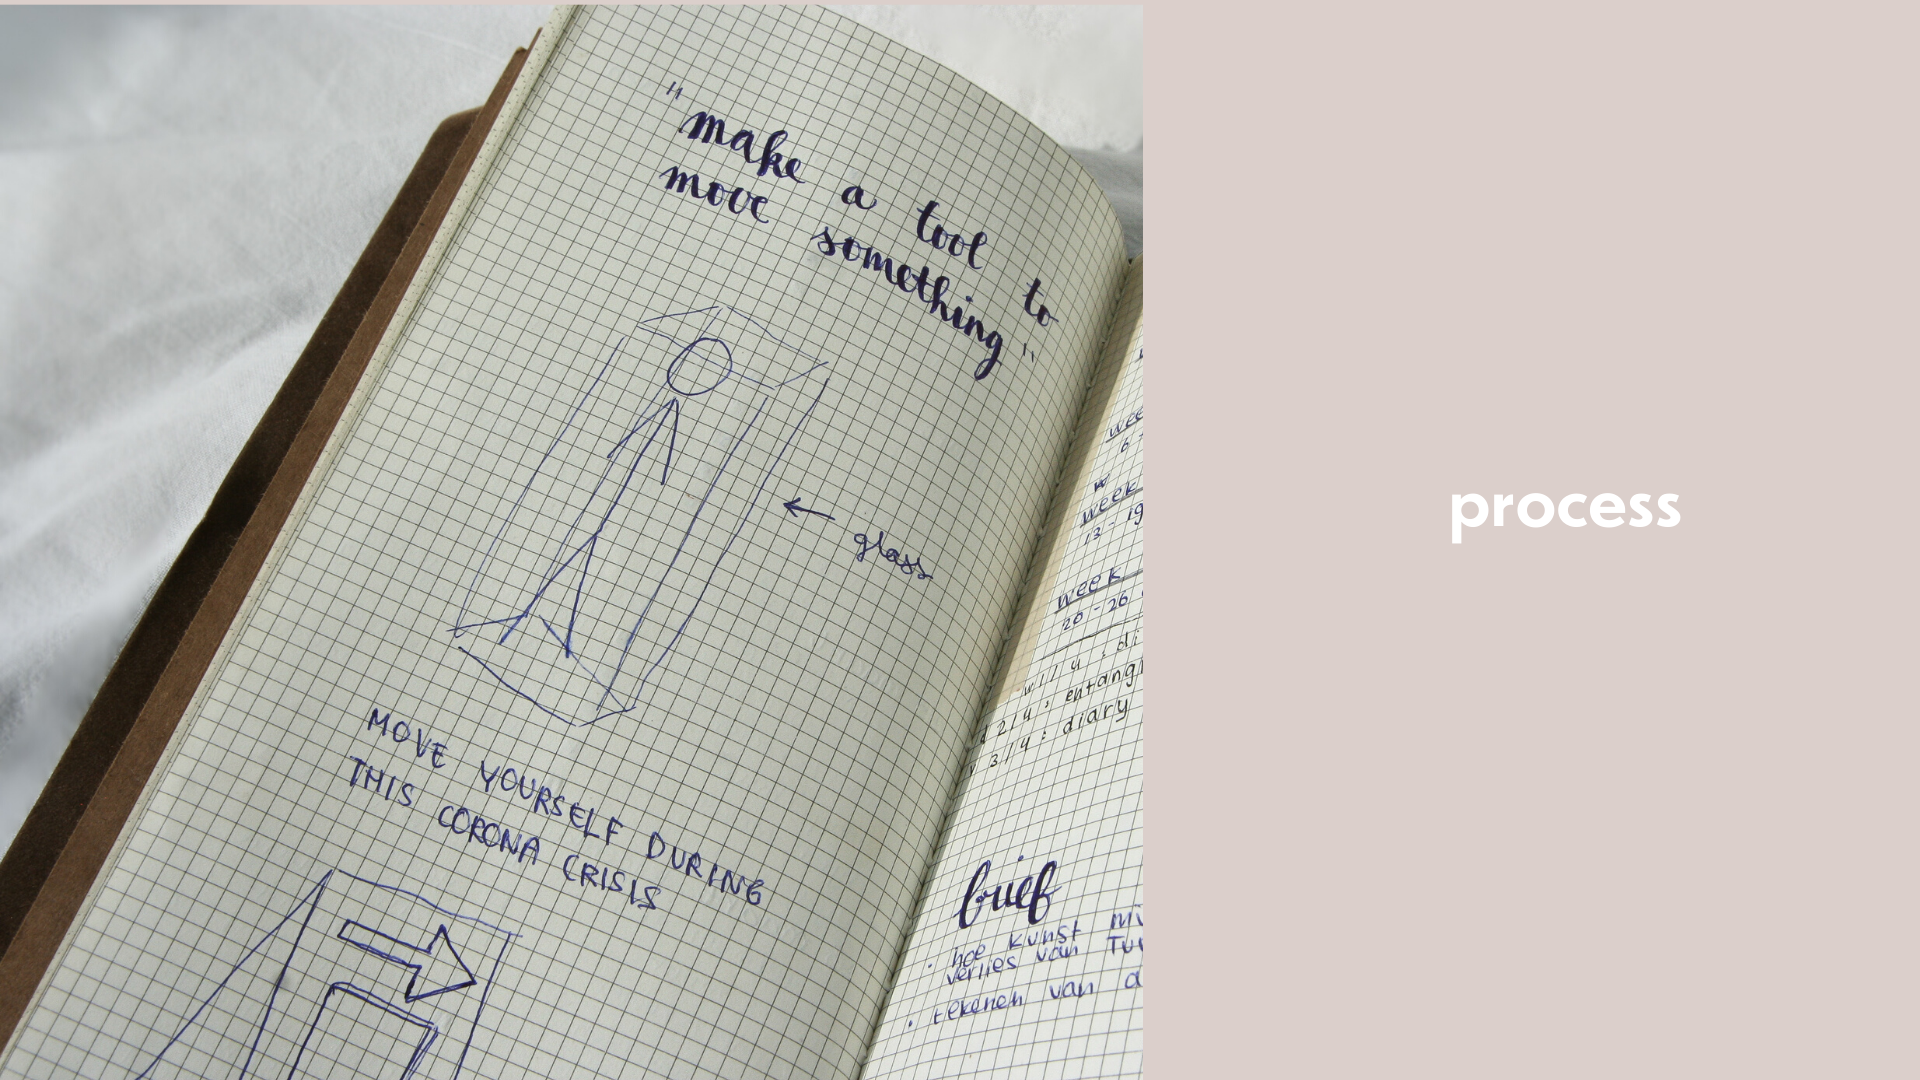 "make a tool to
move something"
glass
MOVE YOURSELF DURING
THIS CORONA CRISIS
week
13-19
week
20-26
entang
2/4:
3/4: diary
brief
• hoe kunst
verlies van
• tekenen van
process